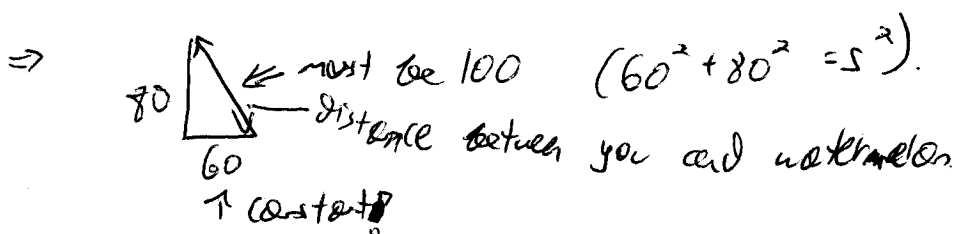 ⇒ must be 100 (60² + 80² = s²).
80 distance between you and watermelon.
60
↑ constant!